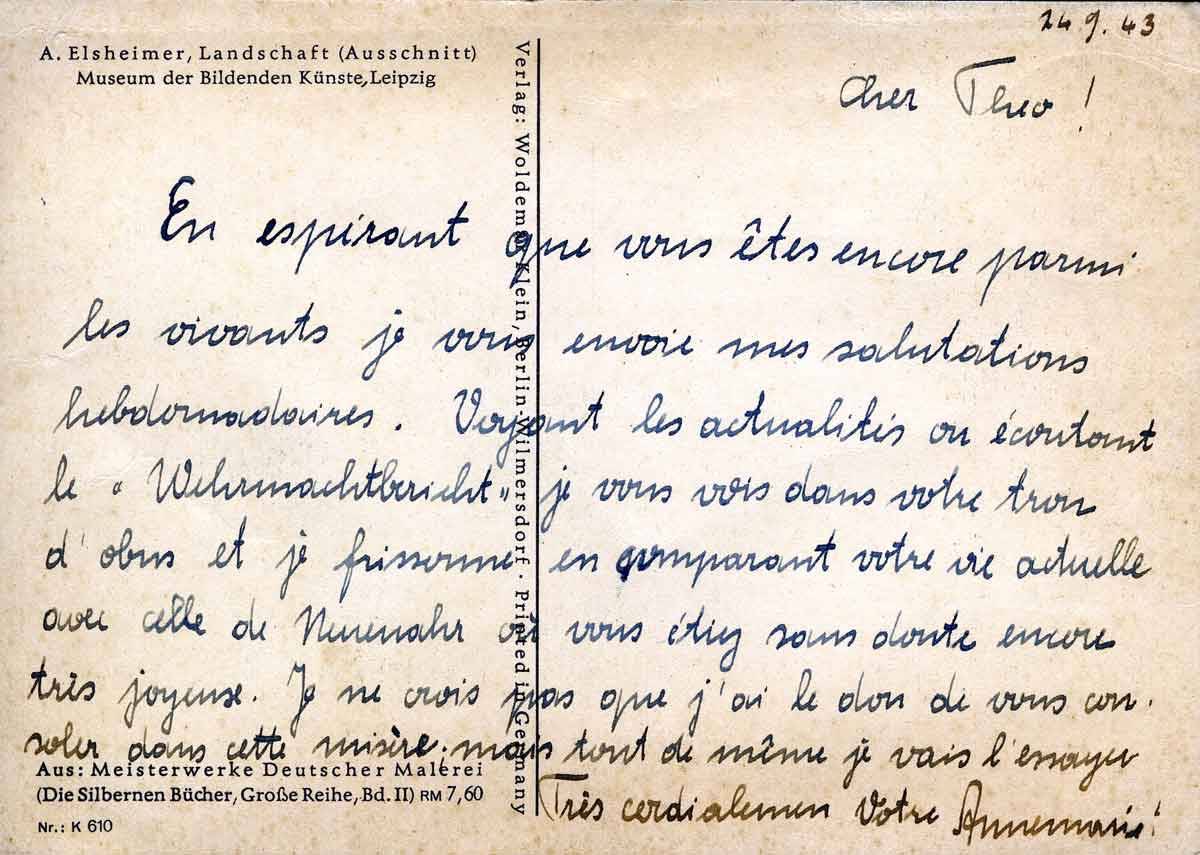 A. Elsheimer, Landschaft (Ausschnitt)
Museum der Bildenden Künste, Leipzig
Verlag: Woldemar Klein, Berlin-Wilmersdorf · Printed in Germany
24 9. 43
Cher Theo !
En espérant que vous êtes encore parmi
les vivants je vous envoie mes salutations
hebdomadaires. Voyant les actualités ou écoutant
le „Wehrmachtbericht" je vous vois dans votre trou
d'obus et je frissonne en comparant votre vie actuelle
avec celle de Neuenahr où vous étiez sans doute encore
très joyeuse. Je ne crois pas que j'ai le don de vous con-
soler dans cette misère; mais tout de même je vais l'essayer
Très cordialemen Votre Annemarie!
Aus: Meisterwerke Deutscher Malerei
(Die Silbernen Bücher, Große Reihe, Bd. II) RM 7,60
Nr.: K 610